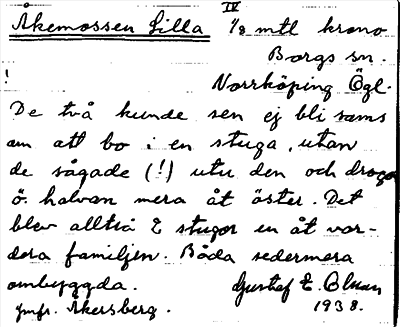 IV
Åkemossen Lilla 1/8 mtl krono
Borgs sn.
!
Norrköping Ögl.
De två kunde sen ej bli sams
om att bo i en stuga, utan
de sågade (!) utu den och droga
ö. halvan mera åt öster. Det
blev alltså 2 stugor en åt var-
dera familjen. Båda sedermera
ombyggda. Gustaf E. Olsson
Jmfr. Åkersberg. 1938.